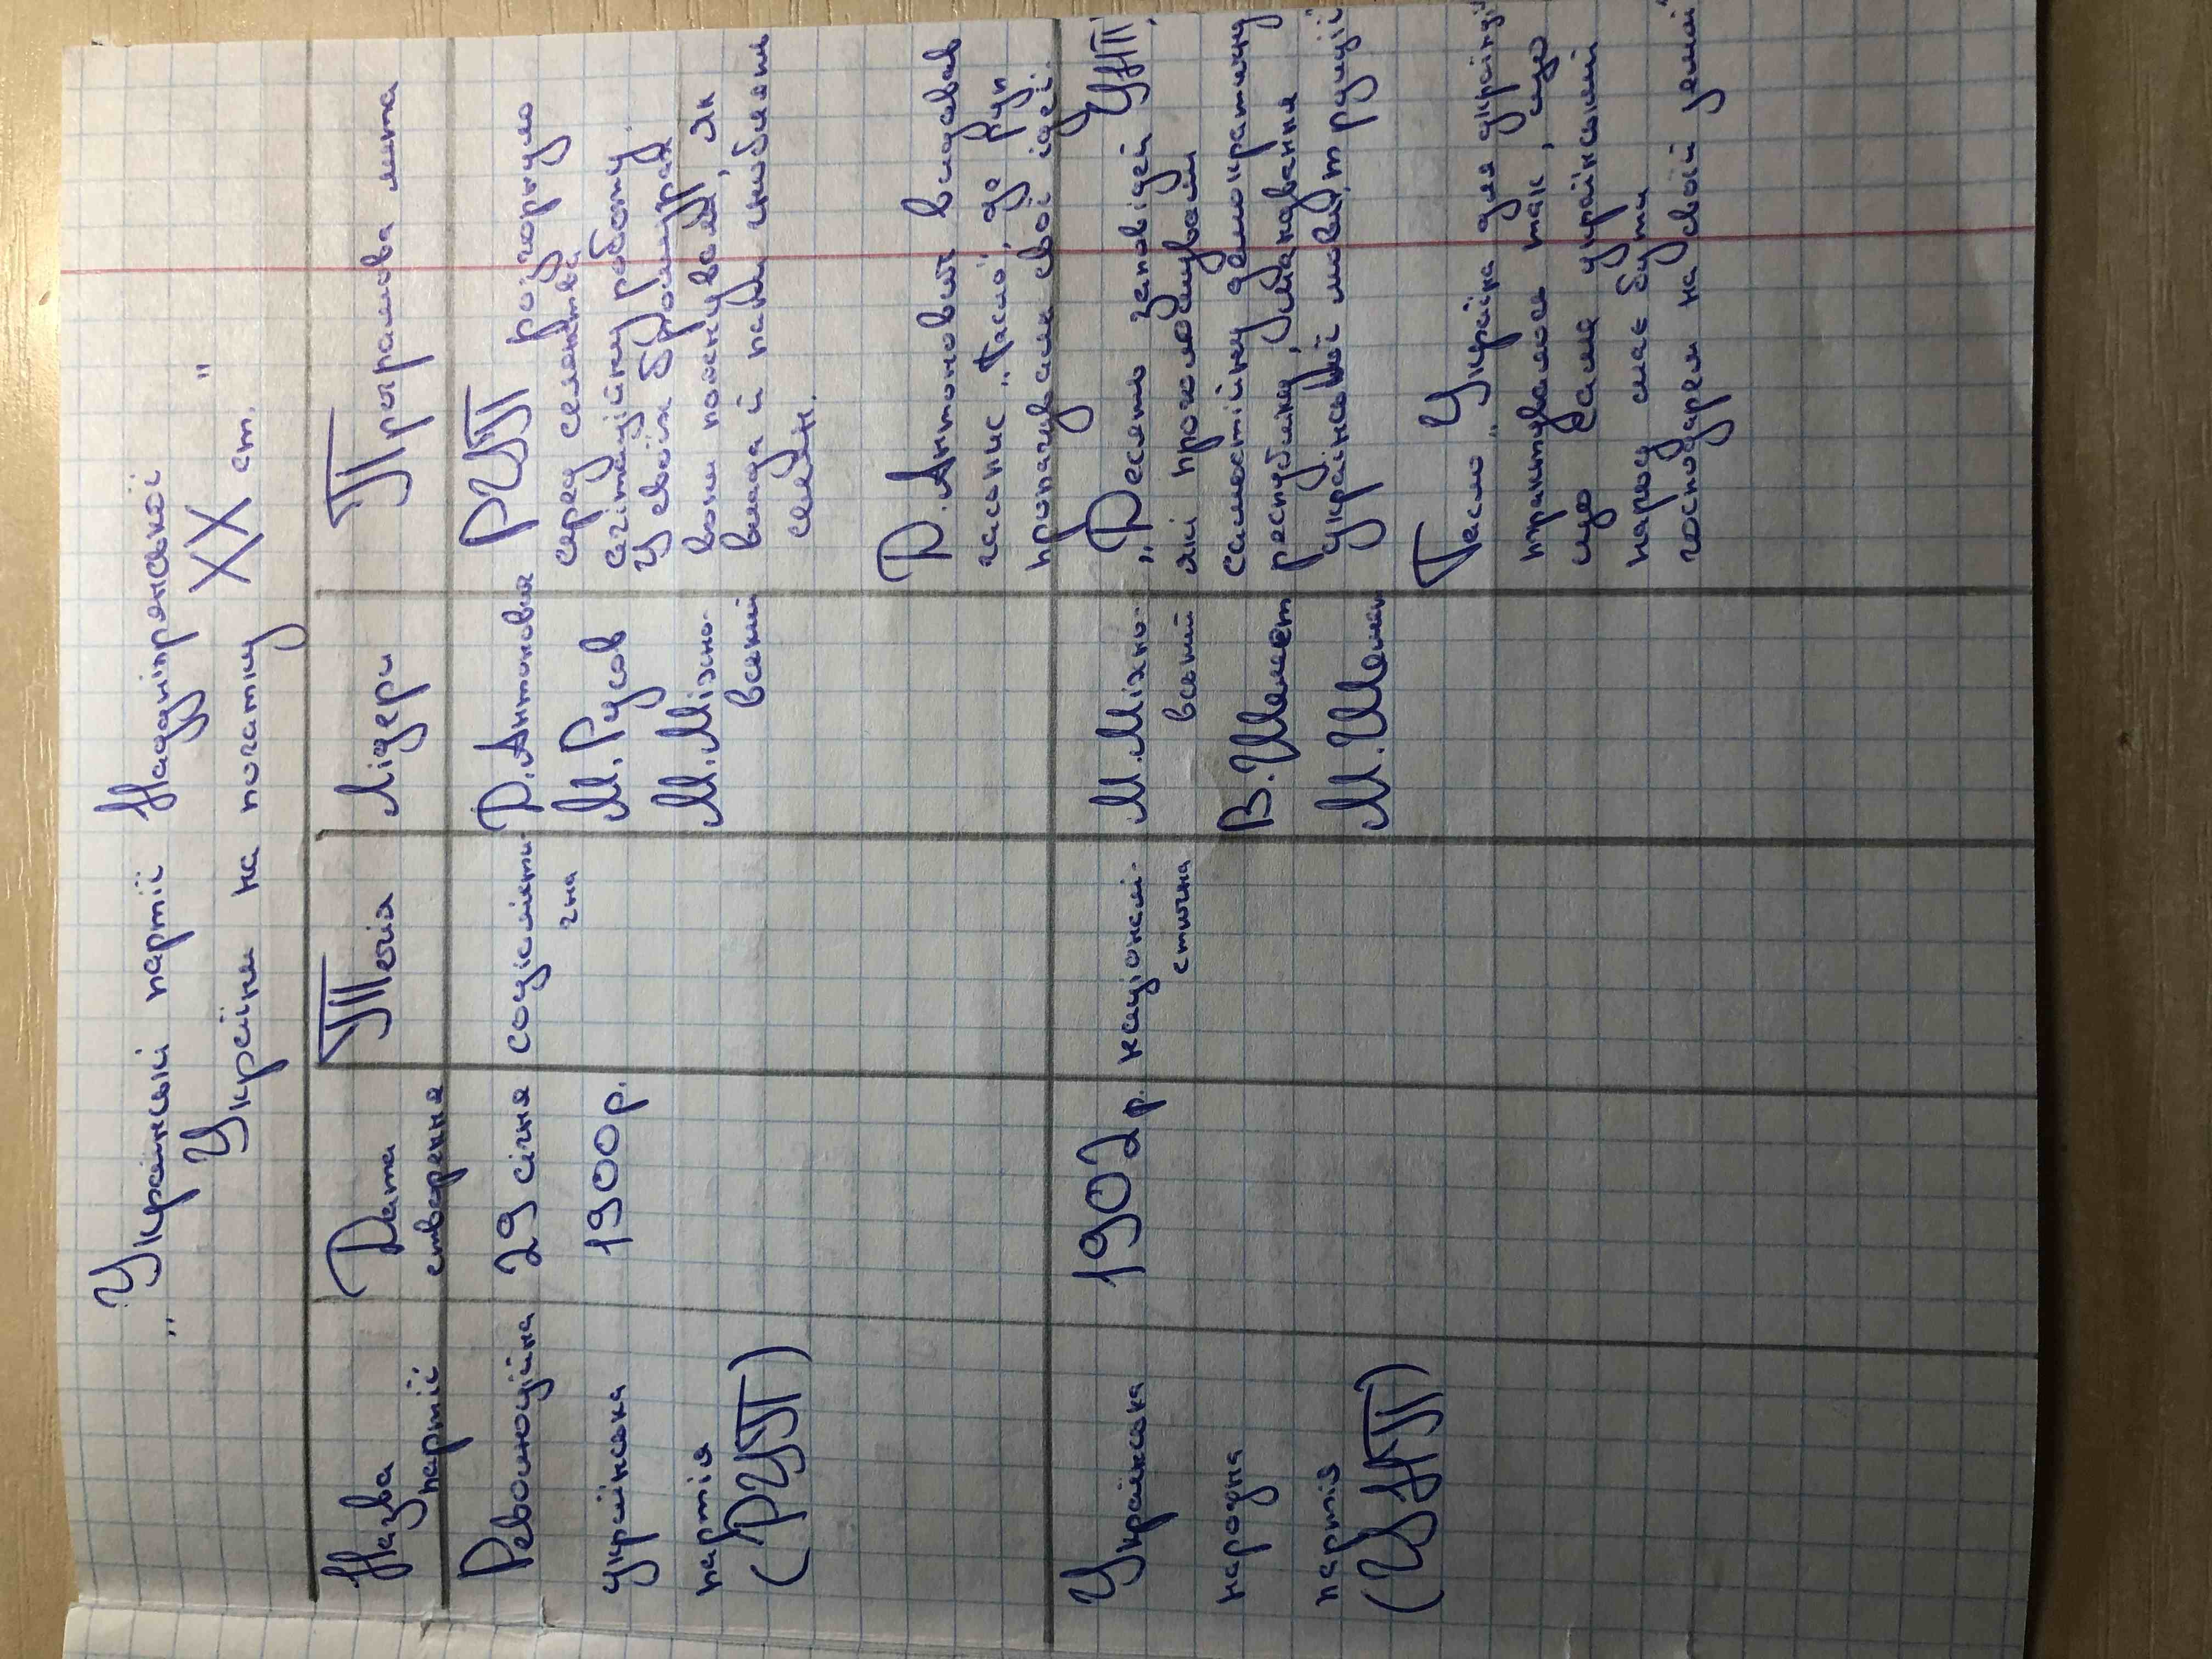 „Українські партії Наддніпрянської
України на початку XX ст."
Назва партії
Дата створення
Течія
Лідери
Програмова мета
Революційна
українська
партія
(РУП)
29 січня
1900р.
соціалісти-
чна
Д.Антонович
М.Русов
М.Міхно-
вський
РУП розгорнуло
серед селянства
агітаційну роботу.
У своїх брошурах
вони пояснували, як
влада й пани гнобили
селян.
Д.Антонович видавав
часопис „Гасло", де РУП
пропагували свої ідеї.
Українська
народна
партія
(УНП)
1902р.
націоналі-
стична
М.Міхно-
вський
В.Шемет
М.Шемет
„Десять заповідей УНП",
які проголошували
самостійну демократичну
республіку, панування
української мови, традицій
Гасло „Україна для українців"
трактувалось так, що
що саме український
народ має бути
господарем на своїй землі